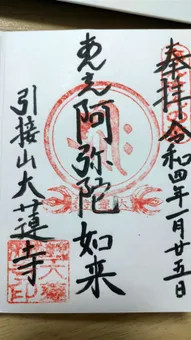 奉拝 令和四年一月廿五日
あみ阿弥陀如来
引接山大蓮寺